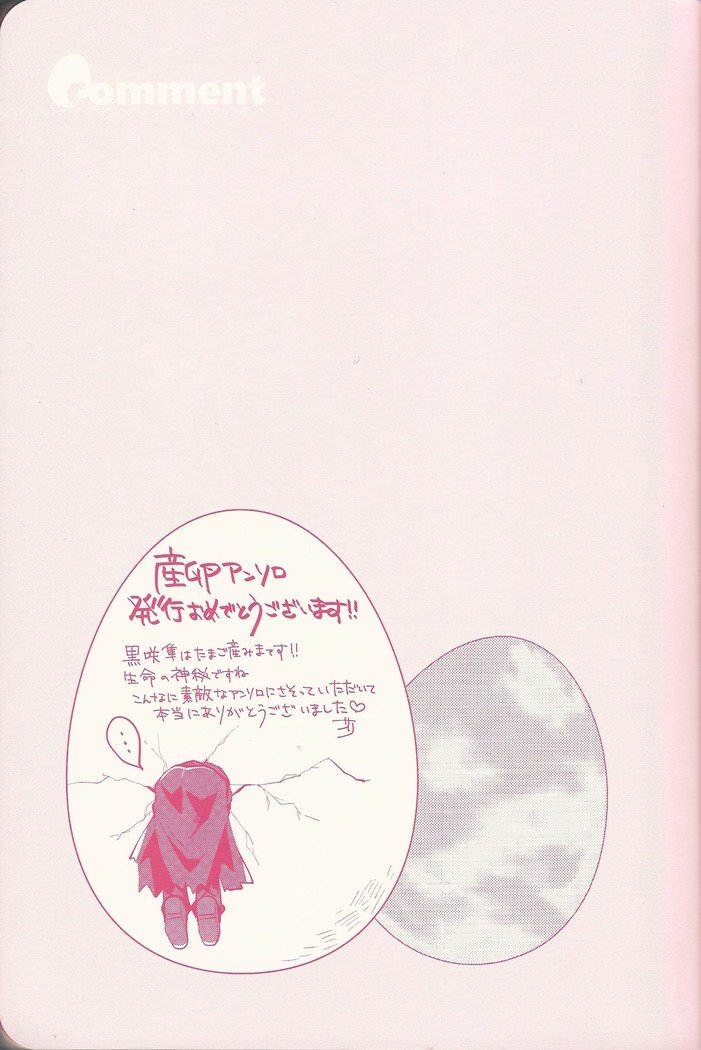 Comment
産卵アンソロ
発行おめでとうございます!!
黒咲隼はたまご産みまてす!!
生命の神秘ですね
こんなに素敵なアンソロにさそっていただいて
本当にありがとうございました♡
...